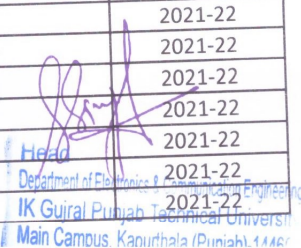 2021-22
2021-22
2021-22
2021-22
2021-22
Head
2021-22
Department of Electronics & Communication Engineering
2021-22
IK Gujral Punjab Technical Universit
Main Campus, Kapurthala (Punjab)-1446